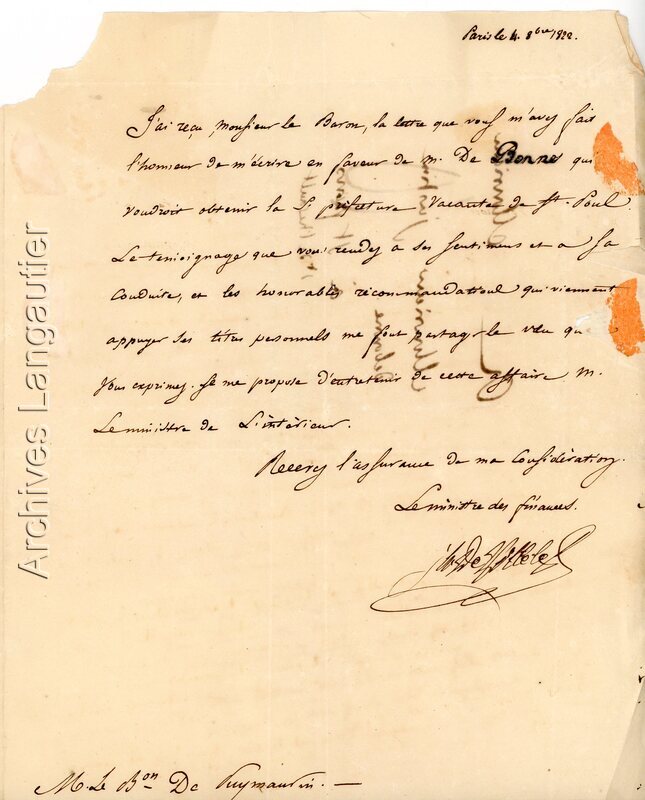 Paris le 4. 8bre 1822.
J'ai reçu, Monsieur le Baron, la lettre que vous m'avez fait
l'honneur de m'écrire en faveur de M. De Bonne qui
voudroit obtenir la S. préfecture Vacante de St. Poul.
Le temoignage que vous rendez a ses sentimens et a sa
Conduite, et les honorables recommandations qui viennent
appuyer ses titres personnels me font partager le vœu que
vous exprimez. Je me propose d'entretenir de cette affaire M.
Le ministre de L'intérieur.
Recevez l'assurance de ma Considération.
Le ministre des finances.
Jh De Villele
M. Le Bon De Puymaurin. —
Archives Langautier